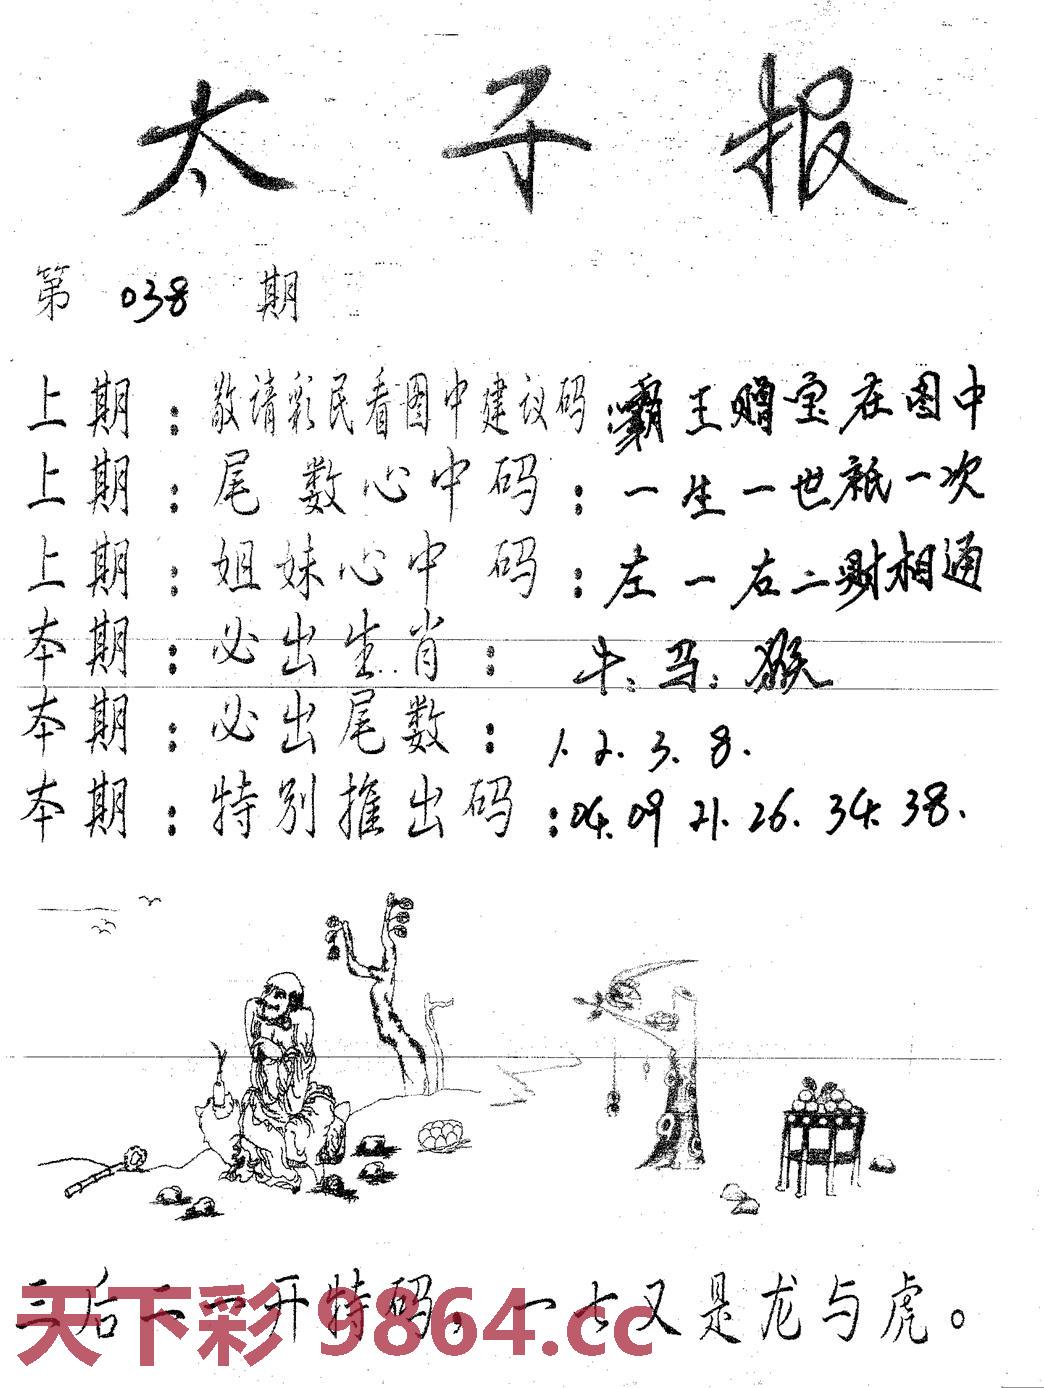 太子报
第 038 期
上期：敬请彩民看图中建议码：霸王赠宝在图中
上期：尾数心中码：一生一世祇一次
上期：姐妹心中码：左一右二财相通
本期：必出生肖：牛.马.猴
本期：必出尾数：1.2.3.8.
本期：特别推出码：04.09 21.26.34.38.
三后二一开特码，一七又是龙与虎。
天下彩 9864.cc